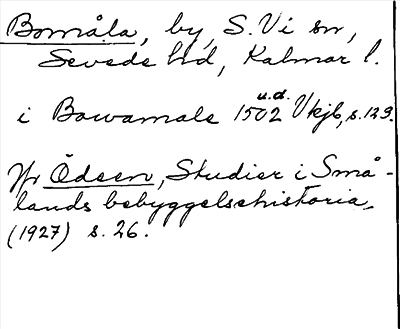 Bomåla, by, S. Vi sn,
Sevede hd, Kalmar l.
i Bowamale 1502 u.d. Vkjb, s. 129.
Jfr Ödeen, Studier i Små-
lands bebyggelsehistoria,
(1927) s. 26.